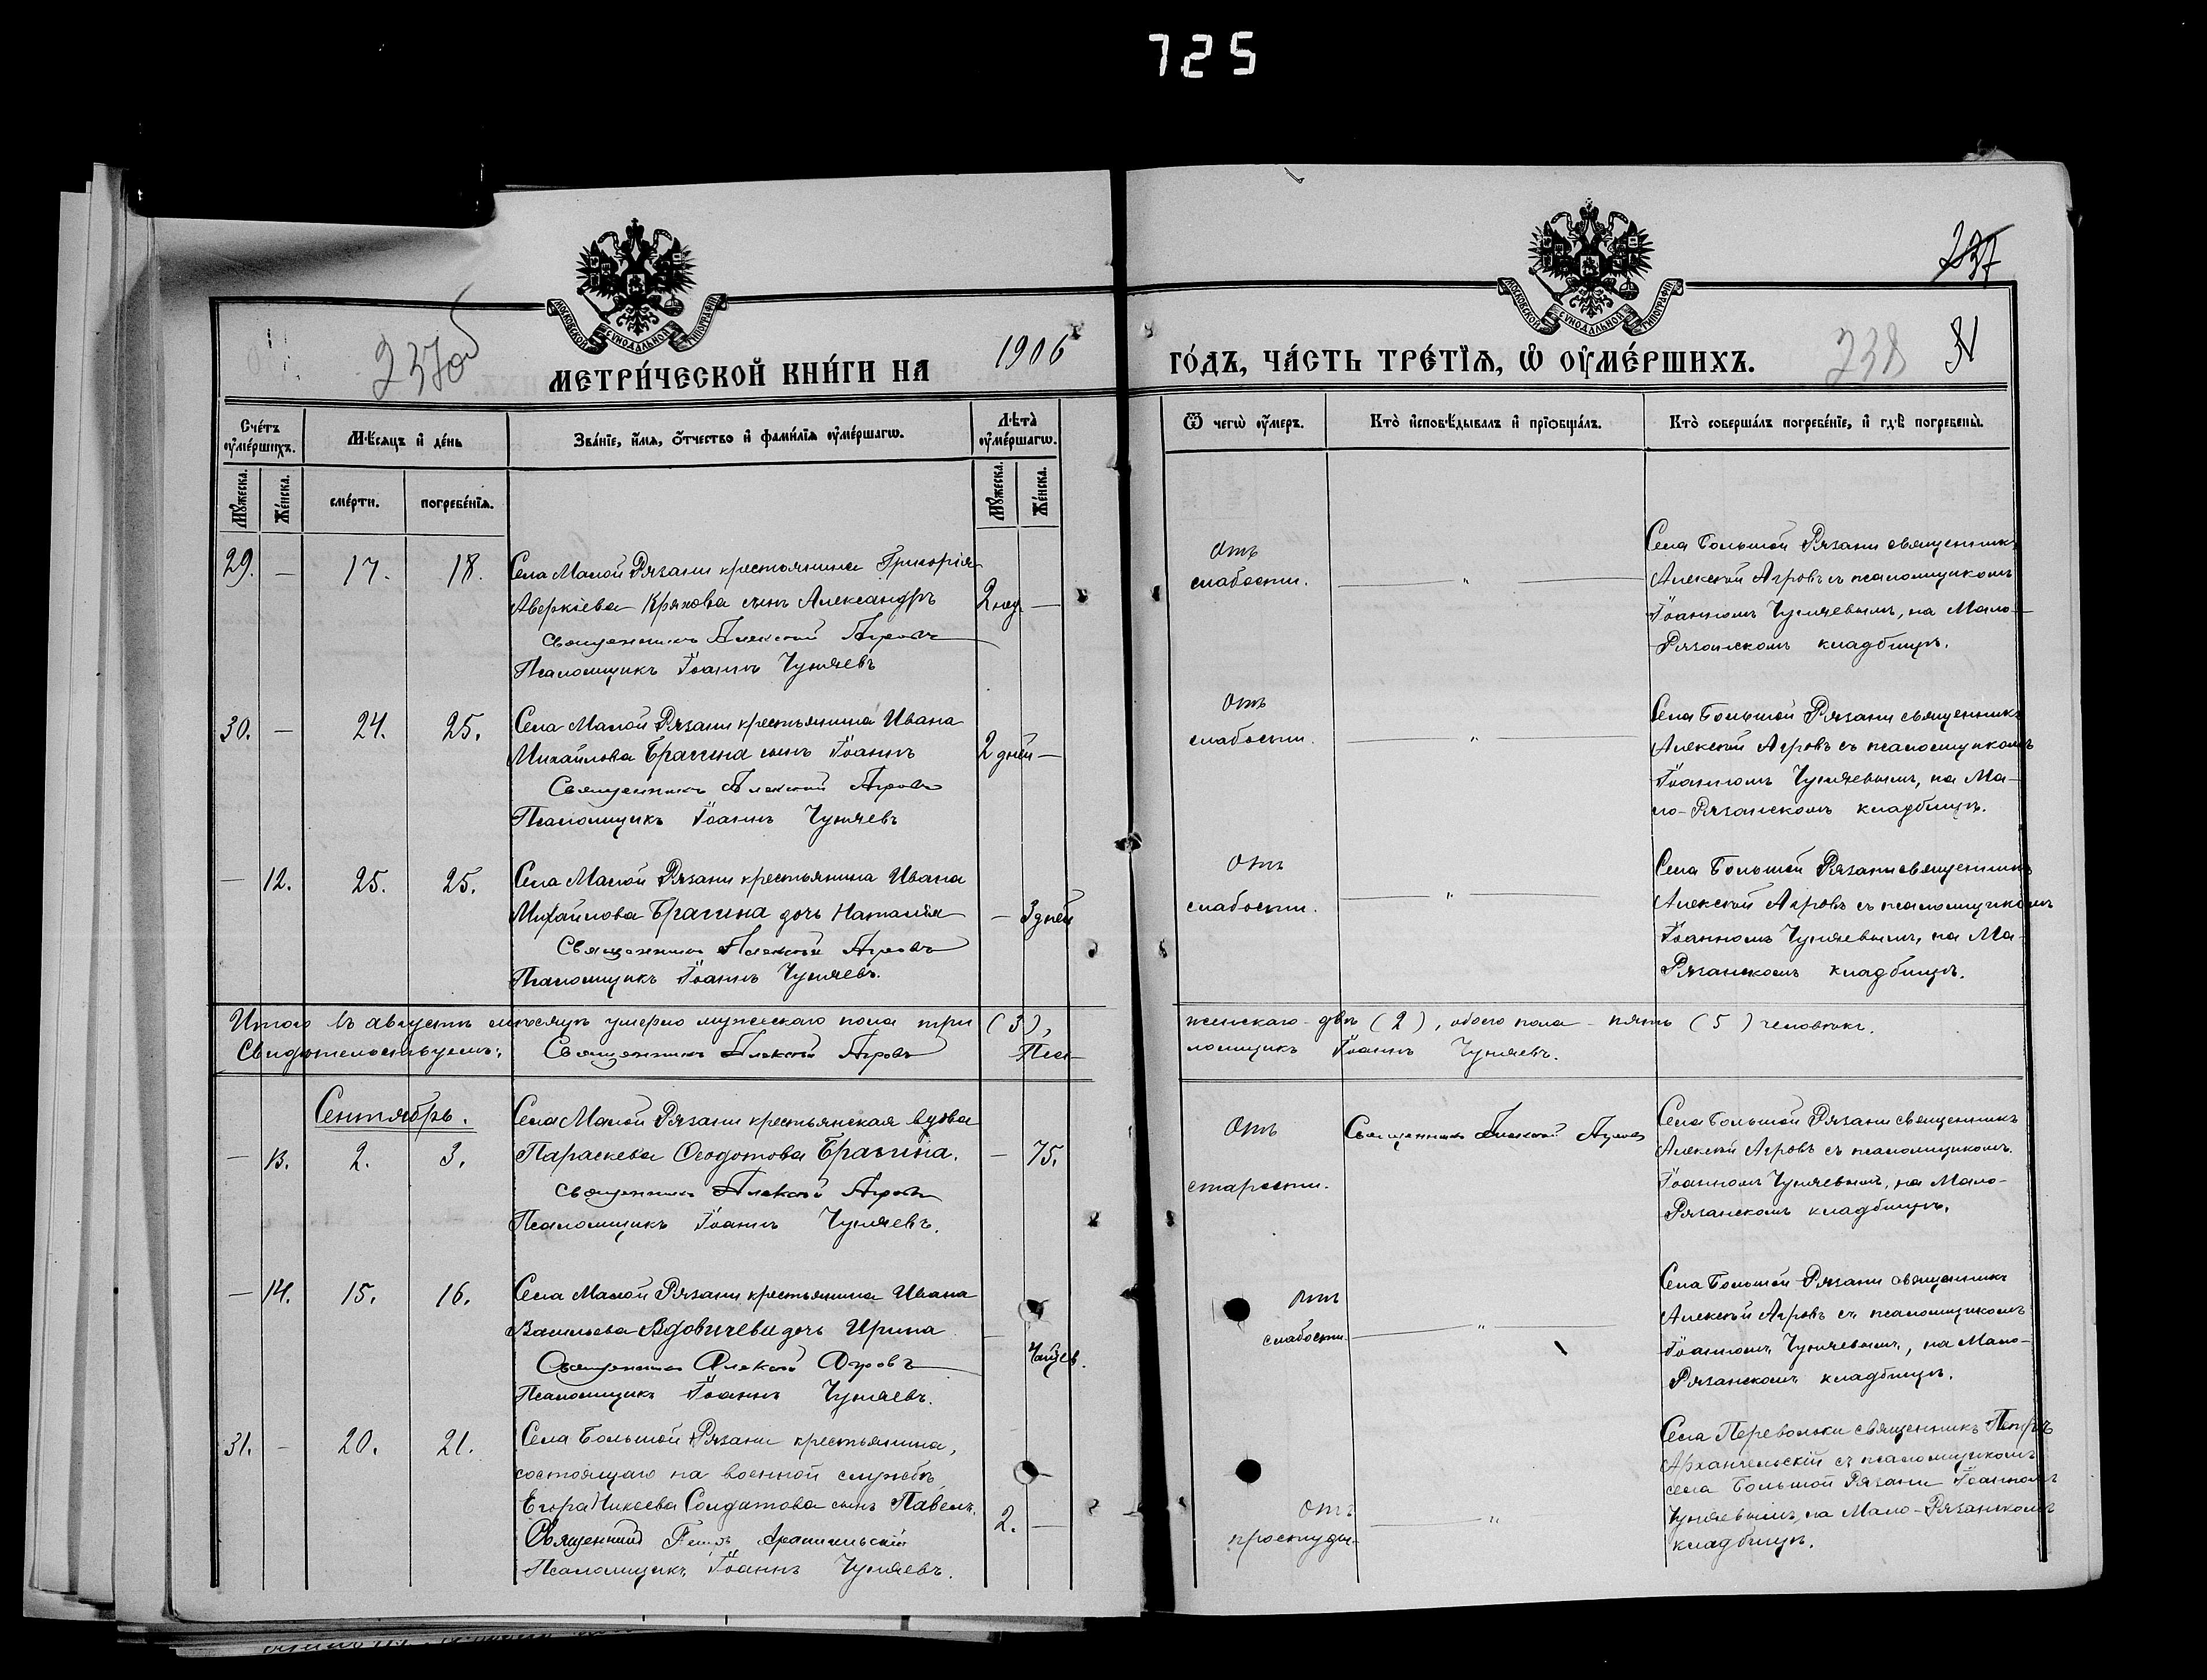 725
МОСКОВСКОЙ СѴНОДАЛЬНОЙ ТИПОГРАФІИ
МОСКОВСКОЙ СѴНОДАЛЬНОЙ ТИПОГРАФІИ
237
237об
МЕТРИ́ЧЕСКОЙ КНИ́ГИ НА 1906
ГО́ДЪ, ЧА́СТЬ ТРЕ́ТЇѦ, Ѡ҆ ОУ҆МЕ́РШИХЪ.
238
Сче́тъ оу҆ме́ршихъ.
Мѣ́сяцъ и҆ де́нь
Зва́нїе, и҆́мѧ, о҆́тчество и҆ фами́лїѧ оу҆ме́ршагѡ.
Лѣ́та̀ оу҆ме́ршагѡ.
Мꙋ́жеска. Же́нска.
сме́рти. погребе́нїѧ.
Мꙋ́жеска. Же́нска.
Ѿ чегѡ̀ оу҆́меръ.
Кто̀ и҆сповѣ́дывалъ и҆ прїѡбща́лъ.
Кто̀ соверша́лъ погребе́нїе, и҆ гдѣ̀ погребены̀.
29. — 17. 18.
Села Малой Рязани крестьянина Григорія
Аверкіева Крякова сынъ Александръ
2 нед —
Священникъ Алексій Агровъ
Псаломщикъ Іоаннъ Чуняевъ
Отъ
слабости.
— " —
Села Большой Рязани священникъ
Алексій Агровъ съ псаломщикомъ
Іоанномъ Чуняевымъ, на Мало-
Рязанскомъ кладбищѣ.
30. — 24. 25.
Села Малой Рязани крестьянина Ивана
Михайлова Брагина сынъ Іоаннъ
2 дней —
Священникъ Алексій Агровъ
Псаломщикъ Іоаннъ Чуняевъ
Отъ
слабости.
— " —
Села Большой Рязани священникъ
Алексій Агровъ съ псаломщикомъ
Іоанномъ Чуняевымъ, на Ма-
ло-Рязанскомъ кладбищѣ.
— 12. 25. 25.
Села Малой Рязани крестьянина Ивана
Михайлова Брагина дочь Наталія
— 3 дней
Священникъ Алексій Агровъ
Псаломщикъ Іоаннъ Чуняевъ.
Отъ
слабости.
— " —
Села Большой Рязани священникъ
Алексій Агровъ съ псаломщикомъ
Іоанномъ Чуняевымъ, на Ма-
Рязанскомъ кладбищѣ.
Итого въ августѣ мѣсяцѣ умерло мужескаго пола три (3), женскаго - двѣ (2), обоего пола - пять (5) человѣкъ.
Свидѣтельствуемъ: Священникъ Алексій Агровъ Пса- ломщикъ Іоаннъ Чуняевъ.
Сентябрь.
— 13. 2. 3.
Села Малой Рязани крестьянская вдова
Параскева Ѳеодотова Брагина.
— 75.
Священникъ Алексій Агровъ
Псаломщикъ Іоаннъ Чуняевъ.
Отъ
старости.
Священникъ Алексій Агровъ
Села Большой Рязани священникъ
Алексій Агровъ съ псаломщикомъ
Іоанномъ Чуняевымъ, на Мало-
Рязанскомъ кладбищѣ.
— 14. 15. 16.
Села Малой Рязани крестьянина Ивана
Васильева Вдовичева дочь Ирина
Священникъ Алексій Агровъ
Псаломщикъ Іоаннъ Чуняевъ.
отъ
слабости
— " —
Села Большой Рязани священникъ
Алексій Агровъ съ псаломщикомъ
Іоанномъ Чуняевымъ, на Мало-
Рязанскомъ кладбищѣ.
31. — 20. 21.
Села Большой Рязани крестьянина,
состоящаго на военной службѣ
Егора Никеева Солдатова сынъ Павелъ.
2. —
Священникъ Петръ Архангельскій
Псаломщикъ Іоаннъ Чуняевъ.
Отъ
простуды
— " —
Села Переволоки священникъ Петръ
Архангельскій съ псаломщикомъ
села Большой Рязани Іоанномъ
Чуняевымъ, на Мало-Рязанскомъ
кладбищѣ.